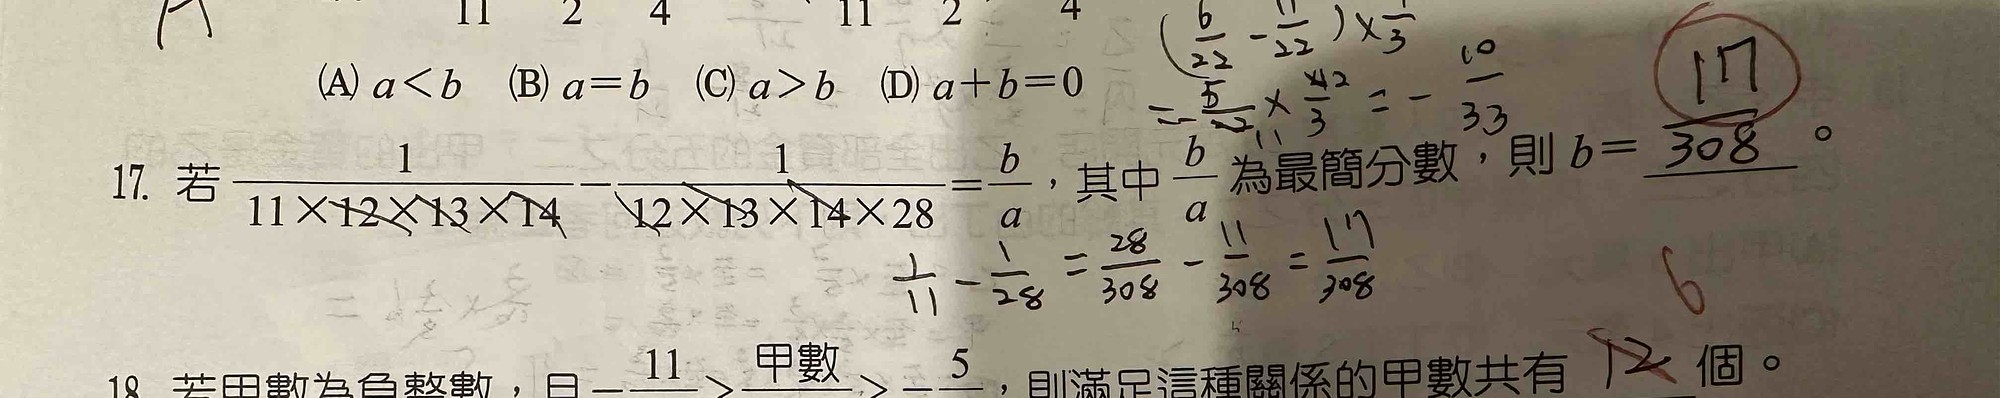 11 2 4 11 2 4
(6/22 - 11/22) × 1/3
(A) a<b (B) a=b (C) a>b (D) a+b=0
= -5/22 × 42/3 = -10/33
17. 若 1/(11×12×13×14) - 1/(12×13×14×28) = b/a，其中 b/a 為最簡分數，則 b= 17/308 。
1/11 - 1/28 = 28/308 - 11/308 = 17/308
6
18. 若甲數為負整數，且 -11 > 甲數 > -5，則滿足這種關係的甲數共有 12 個。